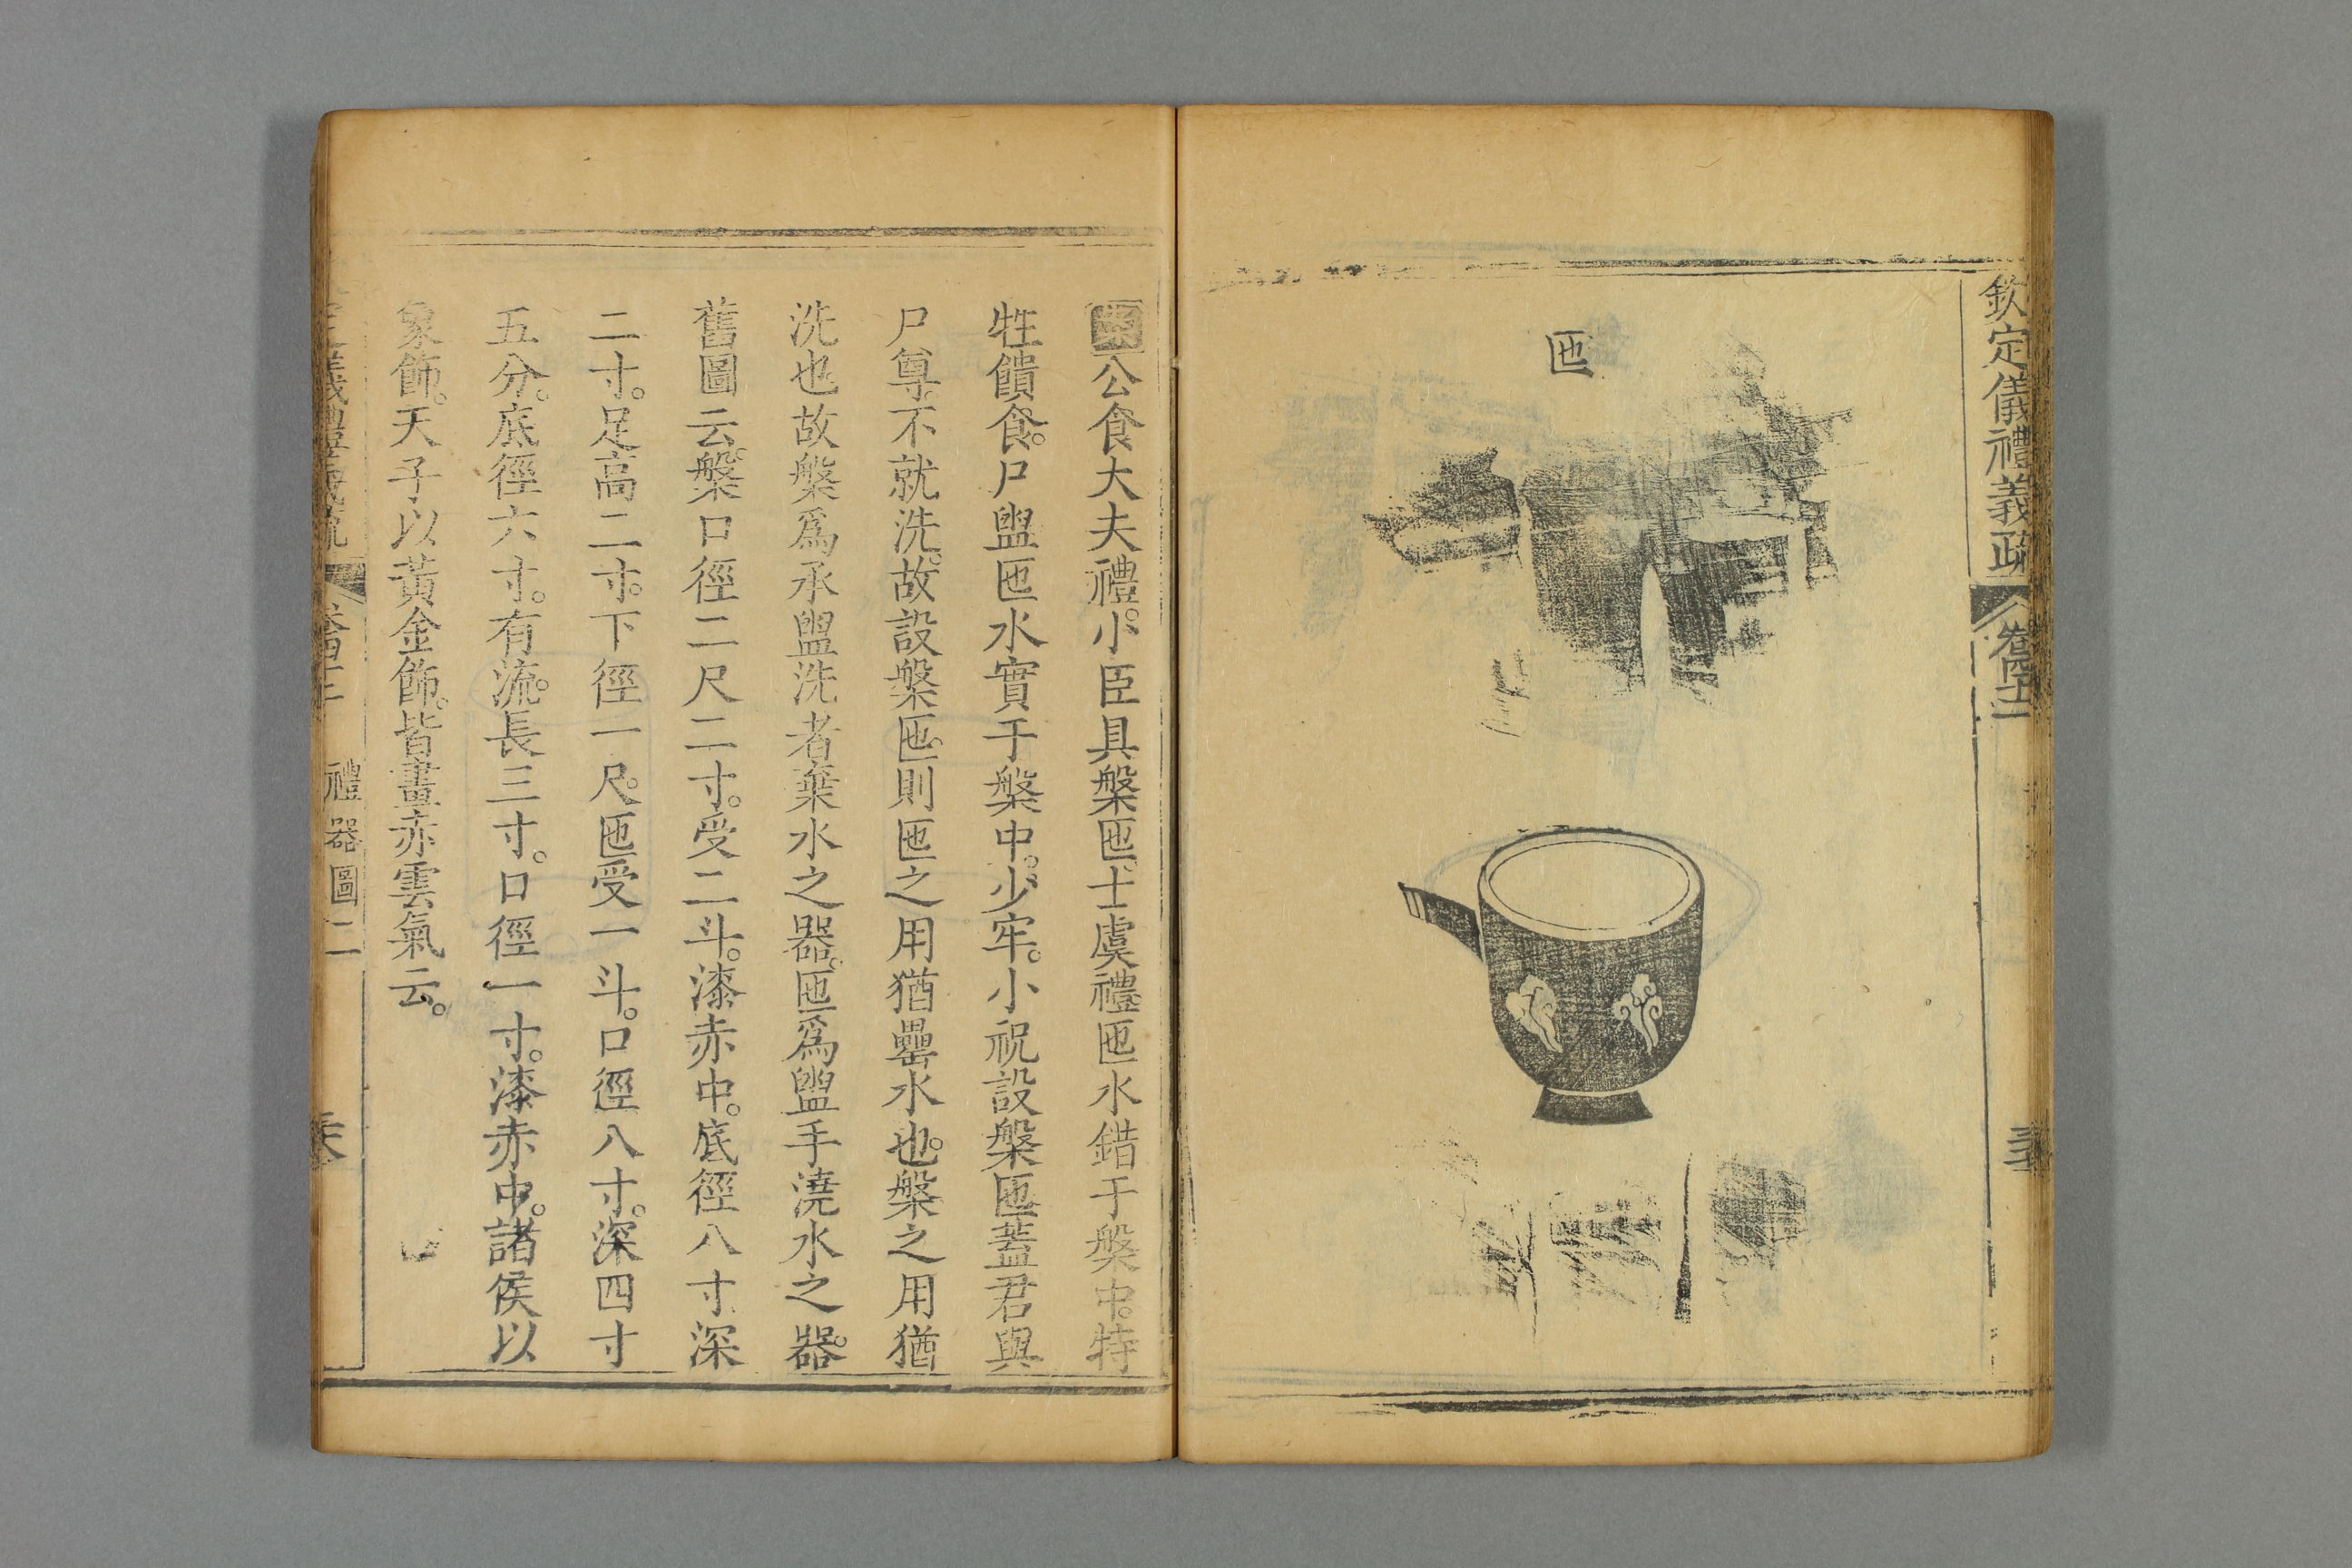 欽定儀禮義疏
匜
公食大夫禮。小臣具槃匜。士虞禮匜水錯于槃中。特
牲饋食。尸盥匜水實于槃中。少牢。小祝設槃匜蓋君與
尸尊。不就洗。故設槃匜。則匜之用猶罍水也。槃之用猶
洗也。故槃爲承盥洗者棄水之器。匜爲盥手澆水之器。
舊圖云。槃口徑二尺二寸。受二斗。漆赤中。底徑八寸深
二寸。足高二寸。下徑一尺。匜受一斗。口徑八寸。深四寸
五分。底徑六寸。有流。長三寸。口徑一寸。漆赤中。諸侯以
象飾。天子以黃金飾。皆畫赤雲氣云。
禮器圖二